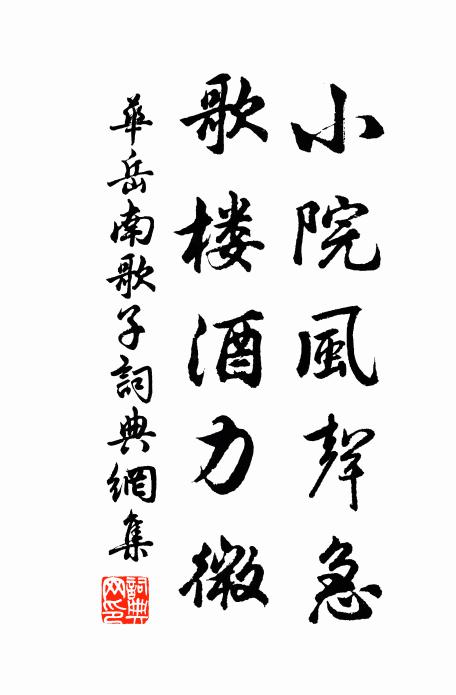 小院風聲急
歌楼酒力微
華岳南歌子詞典網集
詞典网印